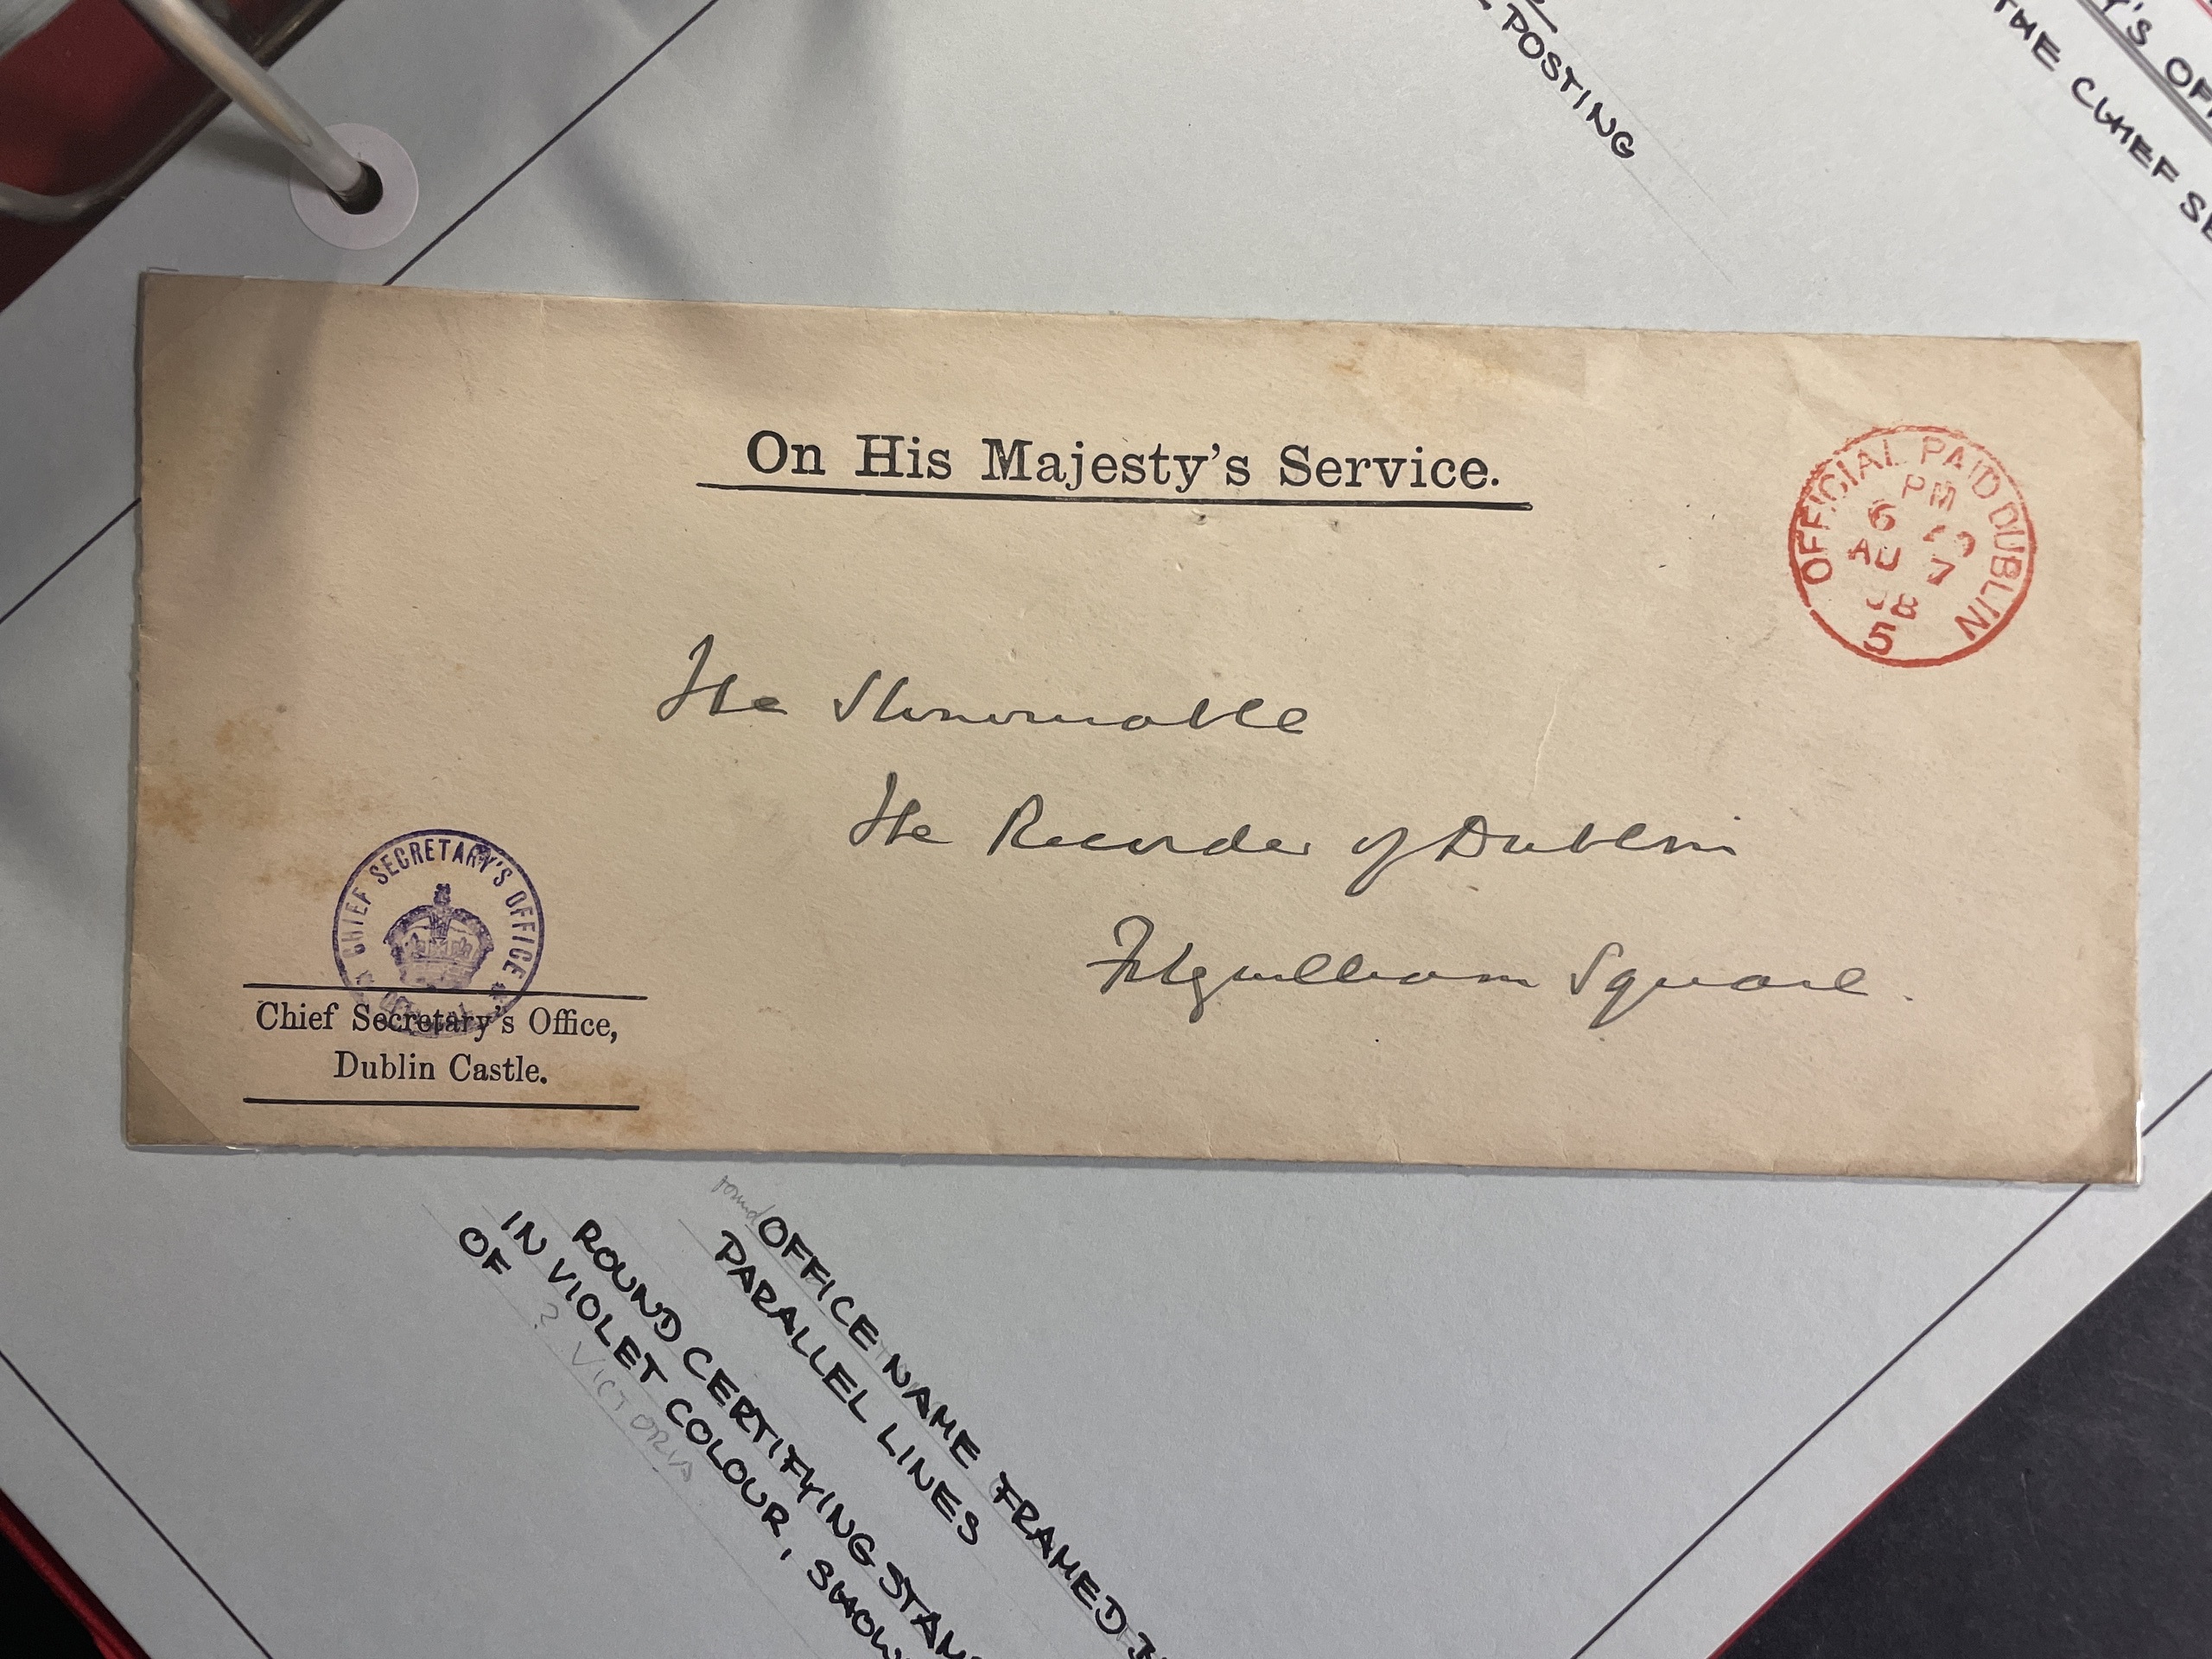 POSTING
Y'S OF
THE CHIEF SE
On His Majesty's Service.
OFFICIAL PAID DUBLIN
PM
6
AU 7
5
The Honourable
The Recorder of Dublin
Fitzwilliam Square.
CHIEF SECRETARY'S OFFICE
Chief Secretary's Office,
Dublin Castle.
round
OFFICE NAME FRAMED
PARALLEL LINES
ROUND CERTIFYING STAM
IN VIOLET COLOUR, SHOW
OF ? VICTORIA